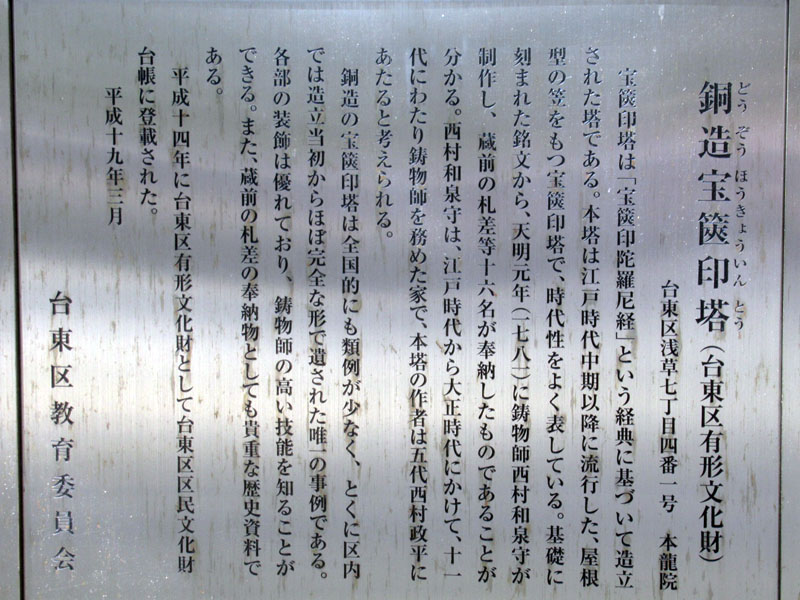 どうぞうほうきょういんとう
銅造宝篋印塔（台東区有形文化財）
台東区浅草七丁目四番一号　本龍院
宝篋印塔は「宝篋印陀羅尼経」という経典に基づいて造立
された塔である。本塔は江戸時代中期以降に流行した、屋根
型の笠をもつ宝篋印塔で、時代性をよく表している。基礎に
刻まれた銘文から、天明元年（一七八一）に鋳物師西村和泉守が
制作し、蔵前の札差等十六名が奉納したものであることが
分かる。西村和泉守は、江戸時代から大正時代にかけて、十一
代にわたり鋳物師を務めた家で、本塔の作者は五代西村政平に
あたると考えられる。
銅造の宝篋印塔は全国的にも類例が少なく、とくに区内
では造立当初からほぼ完全な形で遺された唯一の事例である。
各部の装飾は優れており、鋳物師の高い技能を知ることが
できる。また、蔵前の札差の奉納物としても貴重な歴史資料で
ある。
平成十四年に台東区有形文化財として台東区区民文化財
台帳に登載された。
平成十九年三月
台東区教育委員会